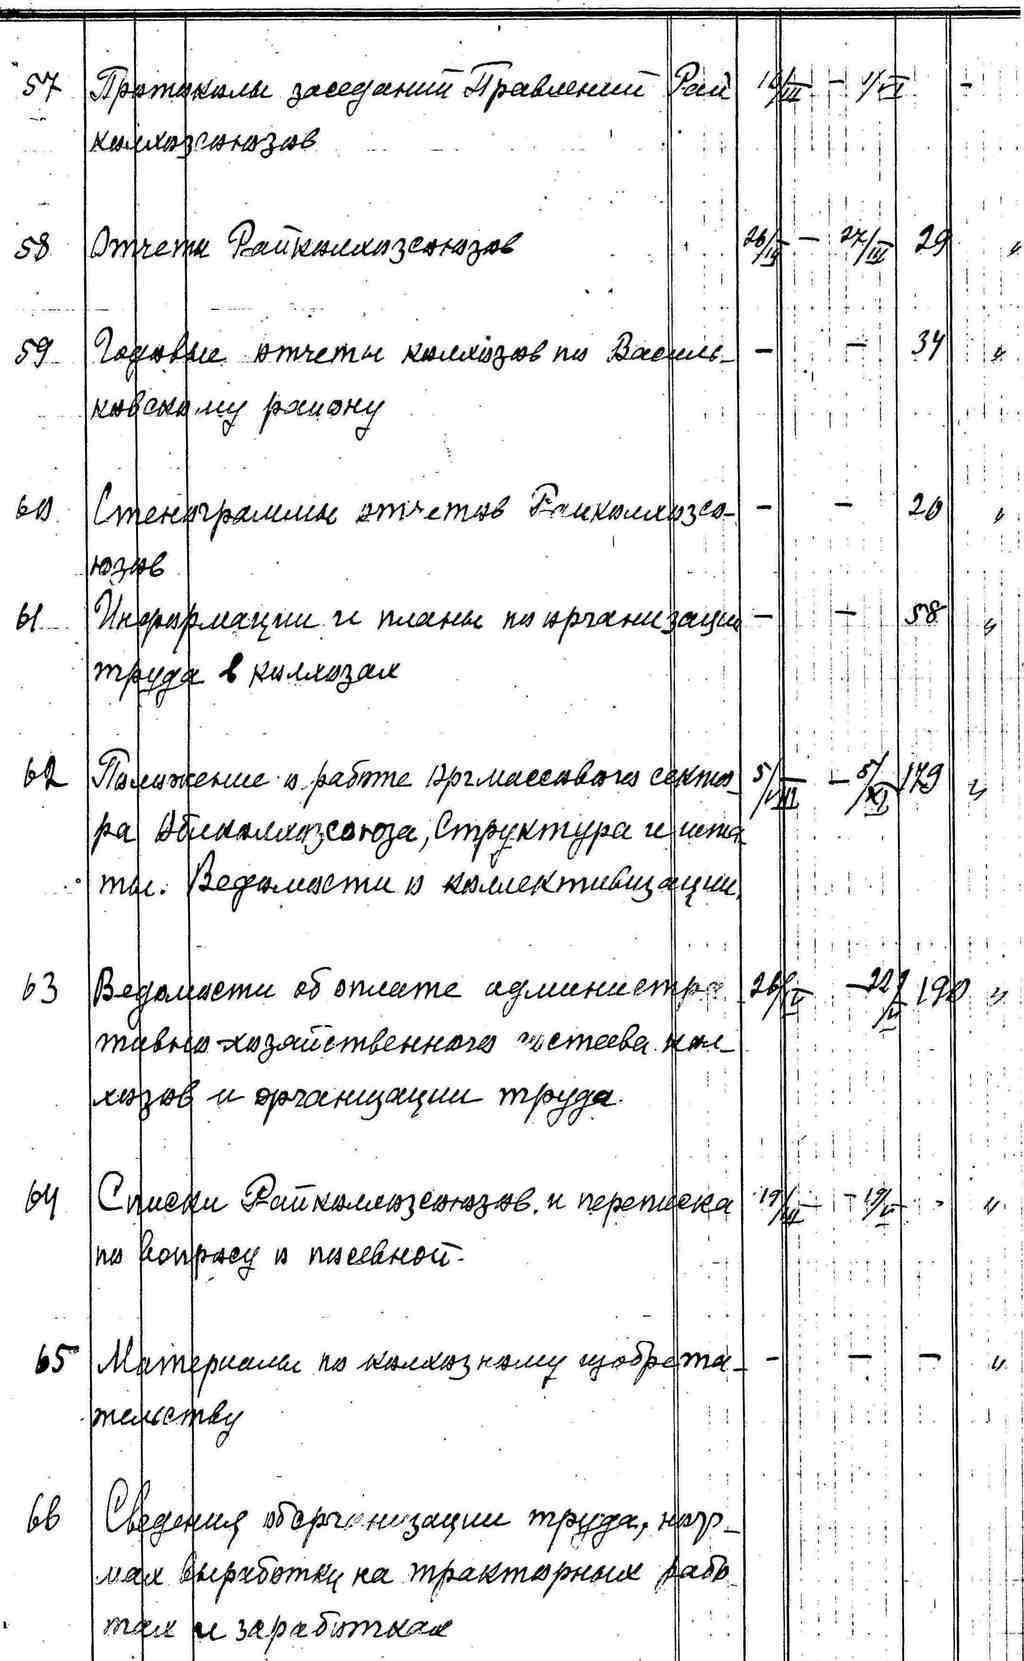 57 Протоколы заседаний Правлений Рай 16/III - 1/VI -
колхозсоюзов
58 Отчеты Райколхозсоюзов 26/IV - 27/III 29 "
59 Годовые отчеты колхозов по Василь- - - 34 "
ковскому району
60 Стенограммы отчетов Райколхозсо- - - 20 "
юзов
61 Информации и планы по организации - - 58 "
труда в колхозах
62 Положение о работе Оргмассового секто- 5/VIII - 5/XI 179 "
ра Облколхозсоюза, Структура и шта
ты. Ведомости о коллективизации.
63 Ведомости об оплате администра 190 "
тивно-хозяйственного состава кол-
хозов и организации труда.
64 Списки Райколхозсоюзов и переписка 19/III - 19/V - "
по вопросу о посевной.
65 Материалы по колхозному изобрета- - - - "
тельству
66 Сведения об организации труда, нор-
мах выработки на тракторных рабо
тах и заработках